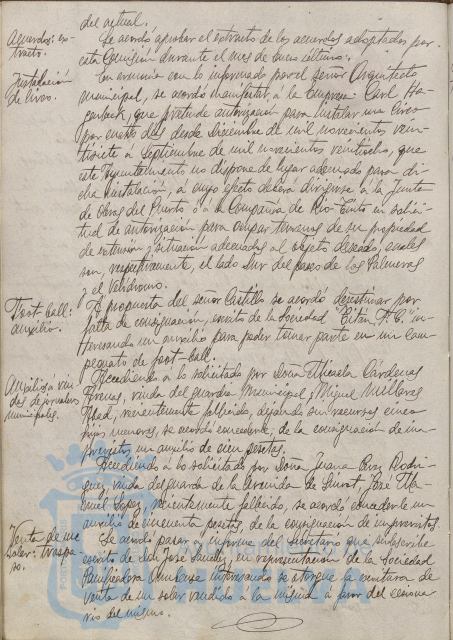 del actual.
Acuerdos: ex-
tracto.
Se acordó aprobar el extracto de los acuerdos adoptados por
esta Comisión durante el mes de Enero último.
Instalación
de Circo.
En armonía con lo informado por el señor Arquitecto
municipal, se acordó manifestar, á la Empresa Carl Ha-
genbeck, que pretende autorización para instalar un Circo
por cuatro días desde Diciembre de mil novecientos vein-
tisiete á Septiembre de mil novecientos veintiocho, que
este Ayuntamiento no dispone de lugar adecuado para di-
cha instalación, á cuyo efecto deberá dirigirse á la Junta
de Obras del Puerto ó á la Compañía de Rio-Tinto en solici-
tud de autorización para ocupar terrenos de su propiedad
de extensión y situación adecuadas al objeto deseado, cuales
son, respectivamente, el lado Sur del paseo de las Palmeras
y el Velódromo.
Foot-ball:
auxilio.
A propuesta del señor Castillo se acordó desestimar por
falta de consignación, escrito de la Sociedad "Titán F. C." in-
teresando un auxilio para poder tomar parte en un cam-
peonato de foot-ball.
Auxilios á viu-
das de jornaleros
municipales.
Accediendo á lo solicitado por Doña Micaela Cárdenas
viuda del guardia Municipal, Miguel
recientemente fallecido, dejando sin recursos cinco
hijos menores, se acordó concederle, de la consignación de im-
previstos, un auxilio de cien pesetas.
Accediendo á lo solicitado por Doña Juana Cruz Rodri-
guez, viuda del guarda de la Avenida de José Ma-
nuel López, recientemente fallecido, se acordó concederle un
auxilio de cincuenta pesetas, de la consignación de imprevistos.
Venta de un
solar: traspa-
so.
Se acordó pasar á informe del Secretario que suscribe
escrito de don José Sánchez, en representación de la Sociedad
Panificadora Onubense interesando se otorgue la escritura de
venta de un solar vendido á la misma á favor del cesiona-
rio del mismo.